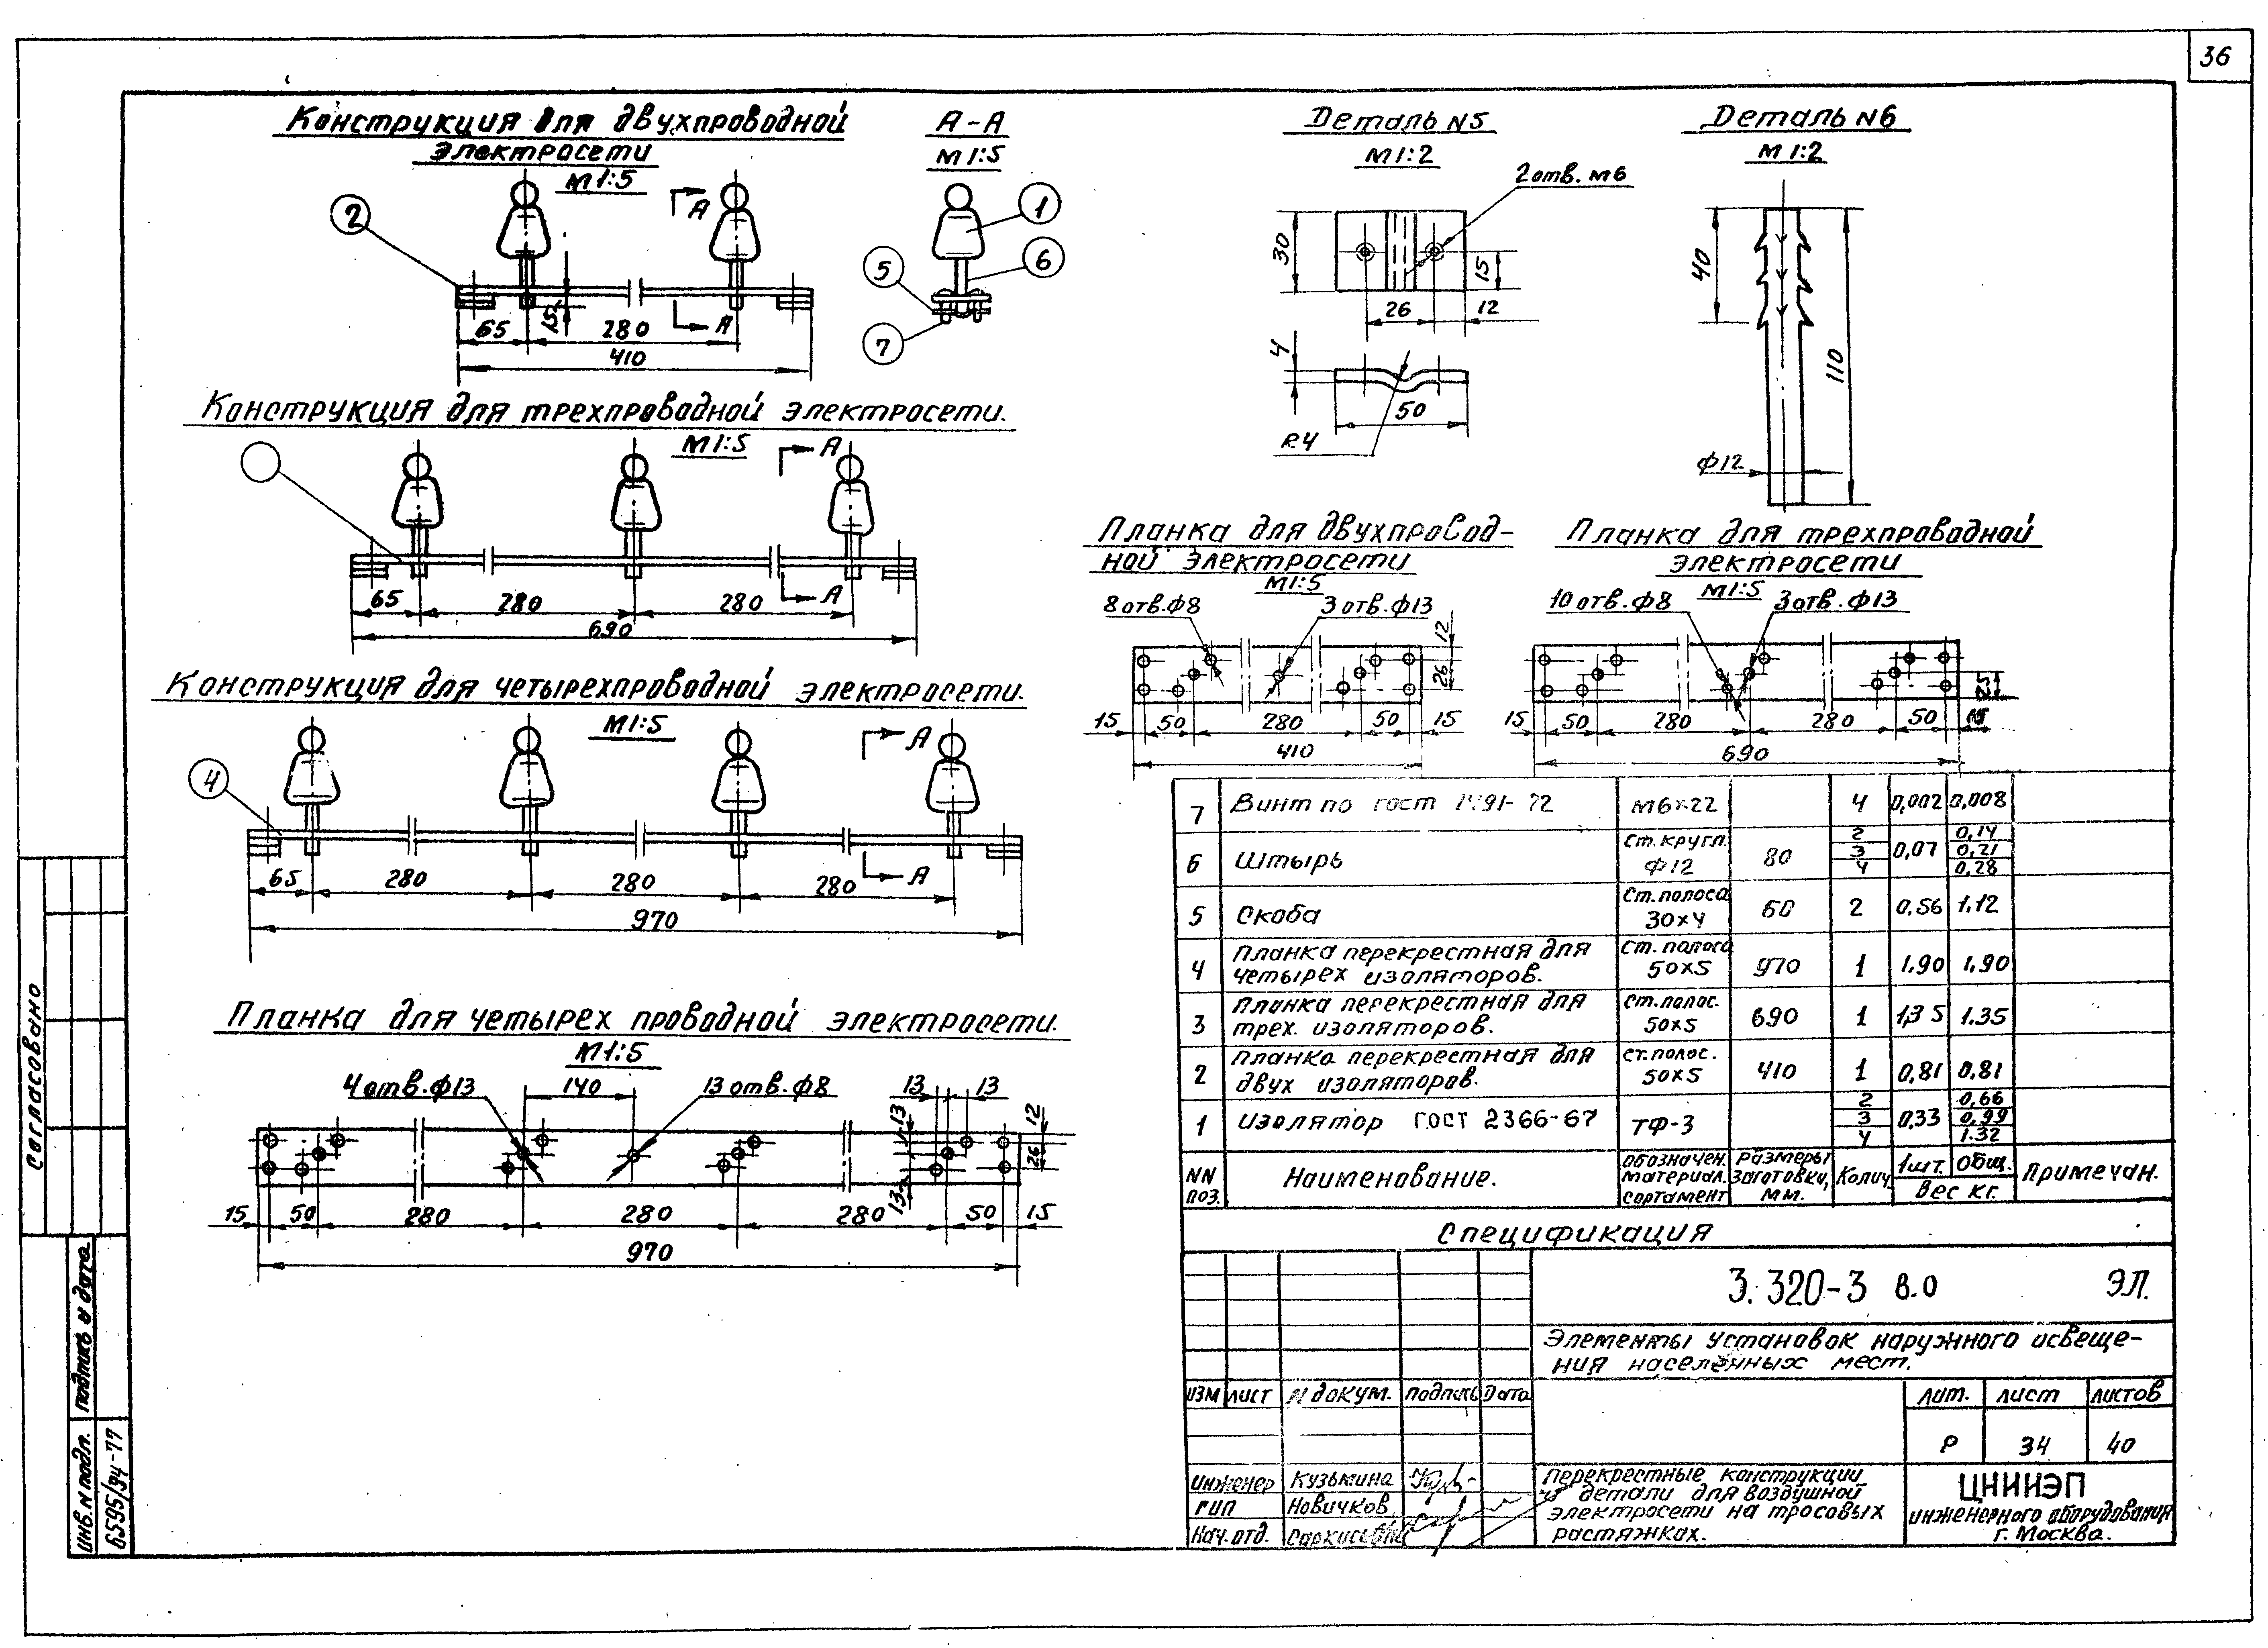 36
Конструкция для двухпроводной
электросети
М1:5
А-А
М1:5
2
А
1
5
6
7
65
15
280
А
410
Деталь N5
М1:2
2 отв. М6
30
15
26
12
4
50
R4
Деталь N6
М1:2
40
110
ф12
Конструкция для трехпроводной электросети.
М1:5
А
65
280
280
А
690
Конструкция для четырехпроводной электросети.
М1:5
А
4
65
280
280
280
А
970
Планка для двухпровод-
ной электросети
М1:5
8 отв. ф8
3 отв. ф13
12
26
15
50
280
50
15
410
Планка для трехпроводной
электросети
М1:5
10 отв. ф8
3 отв. ф13
25
15
50
280
280
50
690
Планка для четырех проводной электросети.
М1:5
4 отв. ф13
140
13 отв. ф8
13
13
13
12
26
13
15
50
280
280
280
50
15
970
7 Винт по гост 1491-72 М6×22 4 0,002 0,008
6 Штырь Ст. кругл. ф12 80 2 3 4 0,07 0,14 0,21 0,28
5 Скоба Ст. полоса 30×4 60 2 0,56 1.12
4 Планка перекрестная для четырех изоляторов. Ст. полоса 50×5 970 1 1.90 1.90
3 Планка перекрестная для трех. изоляторов. Ст. полос. 50×5 690 1 1,35 1.35
2 Планка перекрестная для двух изоляторов. Ст. полос. 50×5 410 1 0,81 0,81
1 Изолятор ГОСТ 2366-67 ТФ-3 2 3 4 0,33 0,66 0,99 1.32
NN поз. Наименование. Обозначен. материал. сортамент Размеры заготовки, мм. Колич. 1шт. Общ. Вес кг. Примечан.
Спецификация
3.320-3 в.0 ЭЛ.
Элементы установок наружного освеще-
ния населенных мест.
Изм Лист N докум. Подпись Дата
Лит. Лист Листов
Р 34 40
Инженер Кузьмина
ГИП Новичков
Нач. отд.
Перекрестные конструкции
и детали для воздушной
электросети на тросовых
растяжках.
ЦНИИЭП
инженерного оборудования
г. Москва.
Согласовано
Подпись и дата
Инв. N подл.
6595/34-77